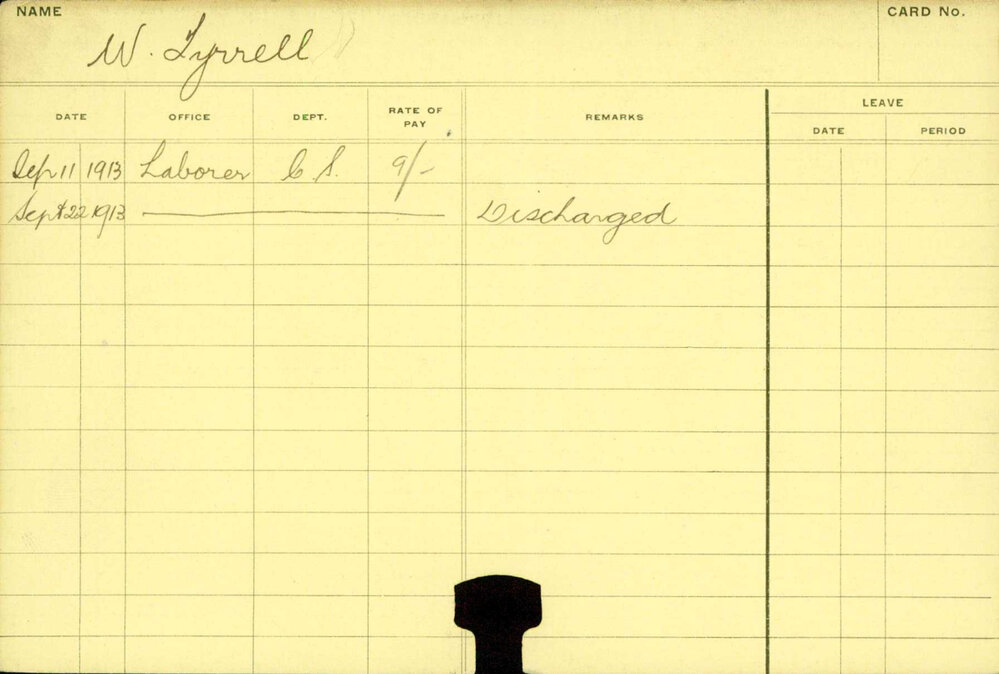 NAME
CARD No.
W. Tyrrell
DATE OFFICE DEPT. RATE OF PAY REMARKS LEAVE
DATE PERIOD
Sep 11 1913 Laborer C.S. 9/-
Sept 22 1913 Discharged